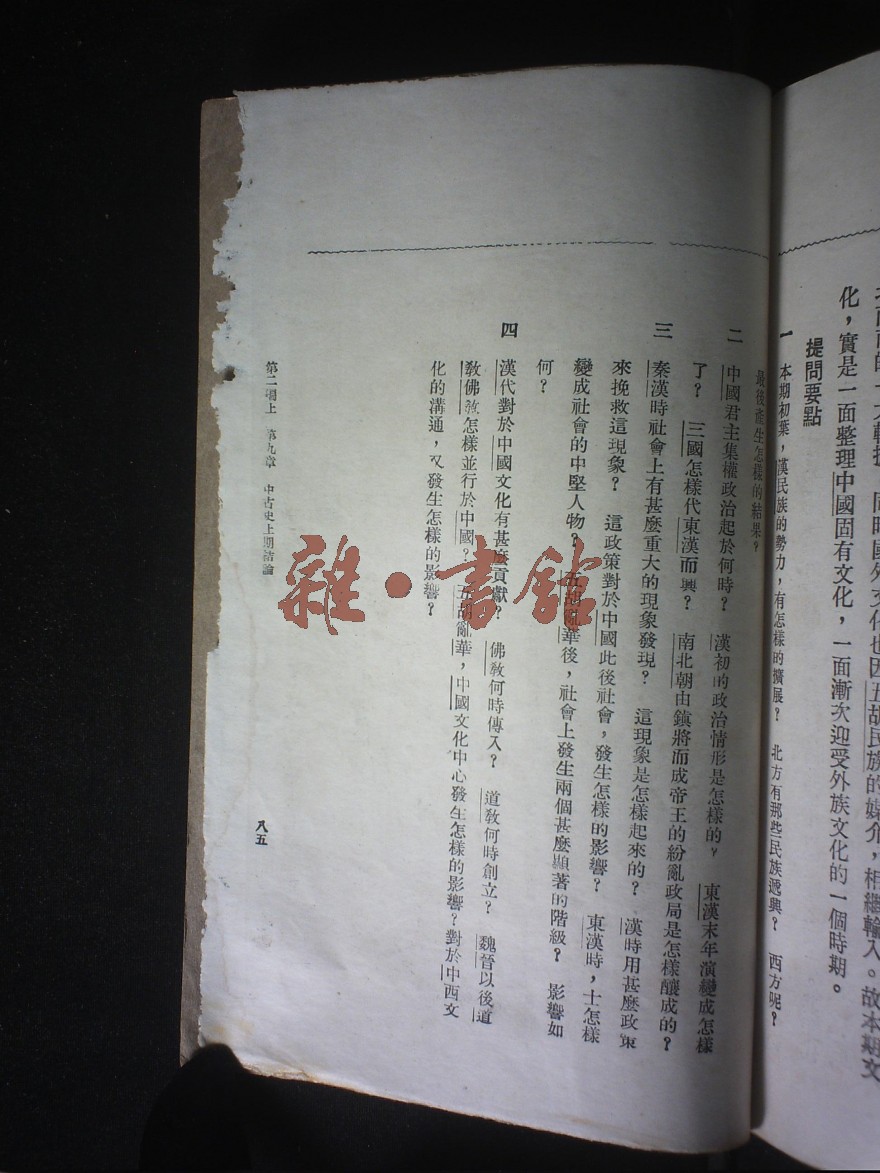 化，實是一面整理中國固有文化，一面漸次迎受外族文化的一個時期。
提問要點
一　本期初葉，漢民族的勢力，有怎樣的擴展？　北方有那些民族遞興？　西方呢？
最後產生怎樣的結果？
二　中國君主集權政治起於何時？　漢初的政治情形是怎樣的？　東漢末年演變成怎樣
了？　三國怎樣代東漢而興？　南北朝由鎮將而成帝王的紛亂政局是怎樣釀成的？
三　秦漢時社會上有甚麼重大的現象發現？　這現象是怎樣起來的？　漢時用甚麼政策
來挽救這現象？　這政策對於中國此後社會，發生怎樣的影響？　東漢時，士怎樣
變成社會的中堅人物？　五胡亂華後，社會上發生兩個甚麼顯著的階級？　影響如
何？
四　漢代對於中國文化有甚麼貢獻？　佛教何時傳入？　道教何時創立？　魏晉以後道
教佛教怎樣並行於中國？五胡亂華，中國文化中心發生怎樣的影響？對於中西文
化的溝通，又發生怎樣的影響？
第二編上　第九章　中古史上期結論
八五
雜·書館